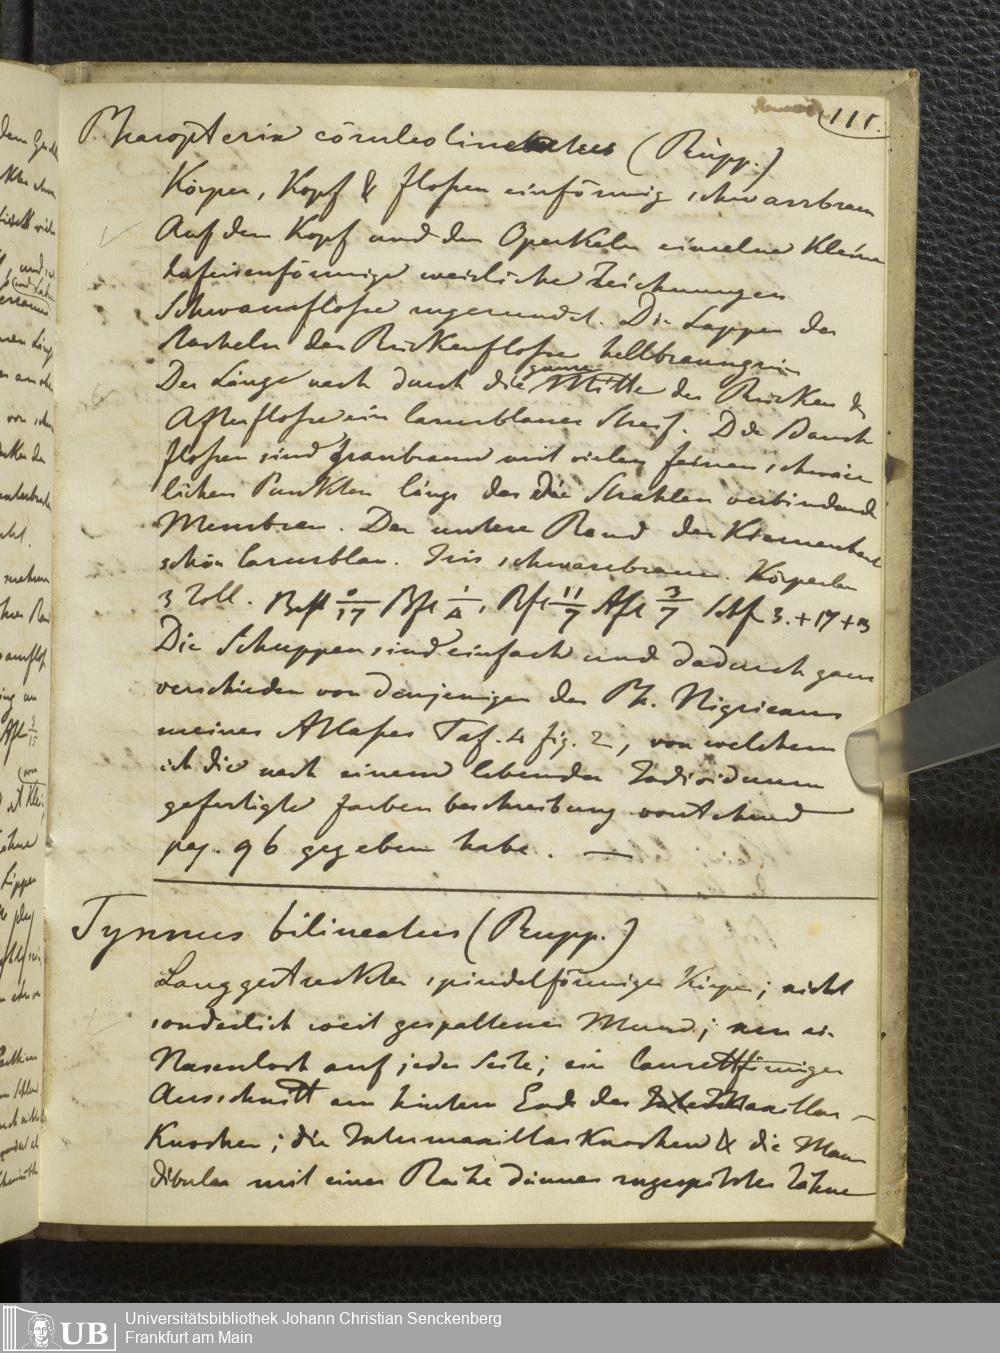 111.
Pharopterix cöruleolineatus (Rüpp.)
Körper, Kopf & flossen einförmig schwarzbraun
Auf dem Kopf und den Operkeln einzelne kleine
hufeisenförmige weisliche Zeichnungen
Schwanzflosse zugerundet. Die Lappen der
Stacheln der Rückenflosse hellbraungrün
ganze
Der Länge nach durch die Mitte der Rücken &
Afterflosse ein lasurblauer Streif. Die Bauch
flossen sind graubraun mit vielen feinen schwärz
lichen Punkten längs der die Strahlen verbindende
Membran. Der untere Rand der Kiemenhaut
schön lasurblau. Iris schwarzbraun. Körperlän
3 Zoll. Brfl 0/17 Bfl 1/4, Rfl 11/7 Afl 3/7 Schfl 3. + 17 + 3
Die Schuppen sind einfach und dadurch ganz
verschieden von denjenigen des Ph. Nigricans
meines Atlasses Taf. 4 fig. 2, von welchem
ich die nach einem lebenden Individuum
gefertigte farbenbeschreibung vorstehend
pag. 96 gegeben habe. —
Tynnus bilineatus (Rupp.)
Langgestreckter spindelförmiger Körper; nicht
sonderlich weit gespaltener Mund; nur ein
Nasenloch auf jeder Seite; ein lanzettförmiger
Ausschnitt am hintern Ende der Maxillar-
Knochen; die Intermaxillar Knochen & die Man
dibular mit einer Reihe dünner zugespitzter Zähne
Universitätsbibliothek Johann Christian Senckenberg
Frankfurt am Main
UB